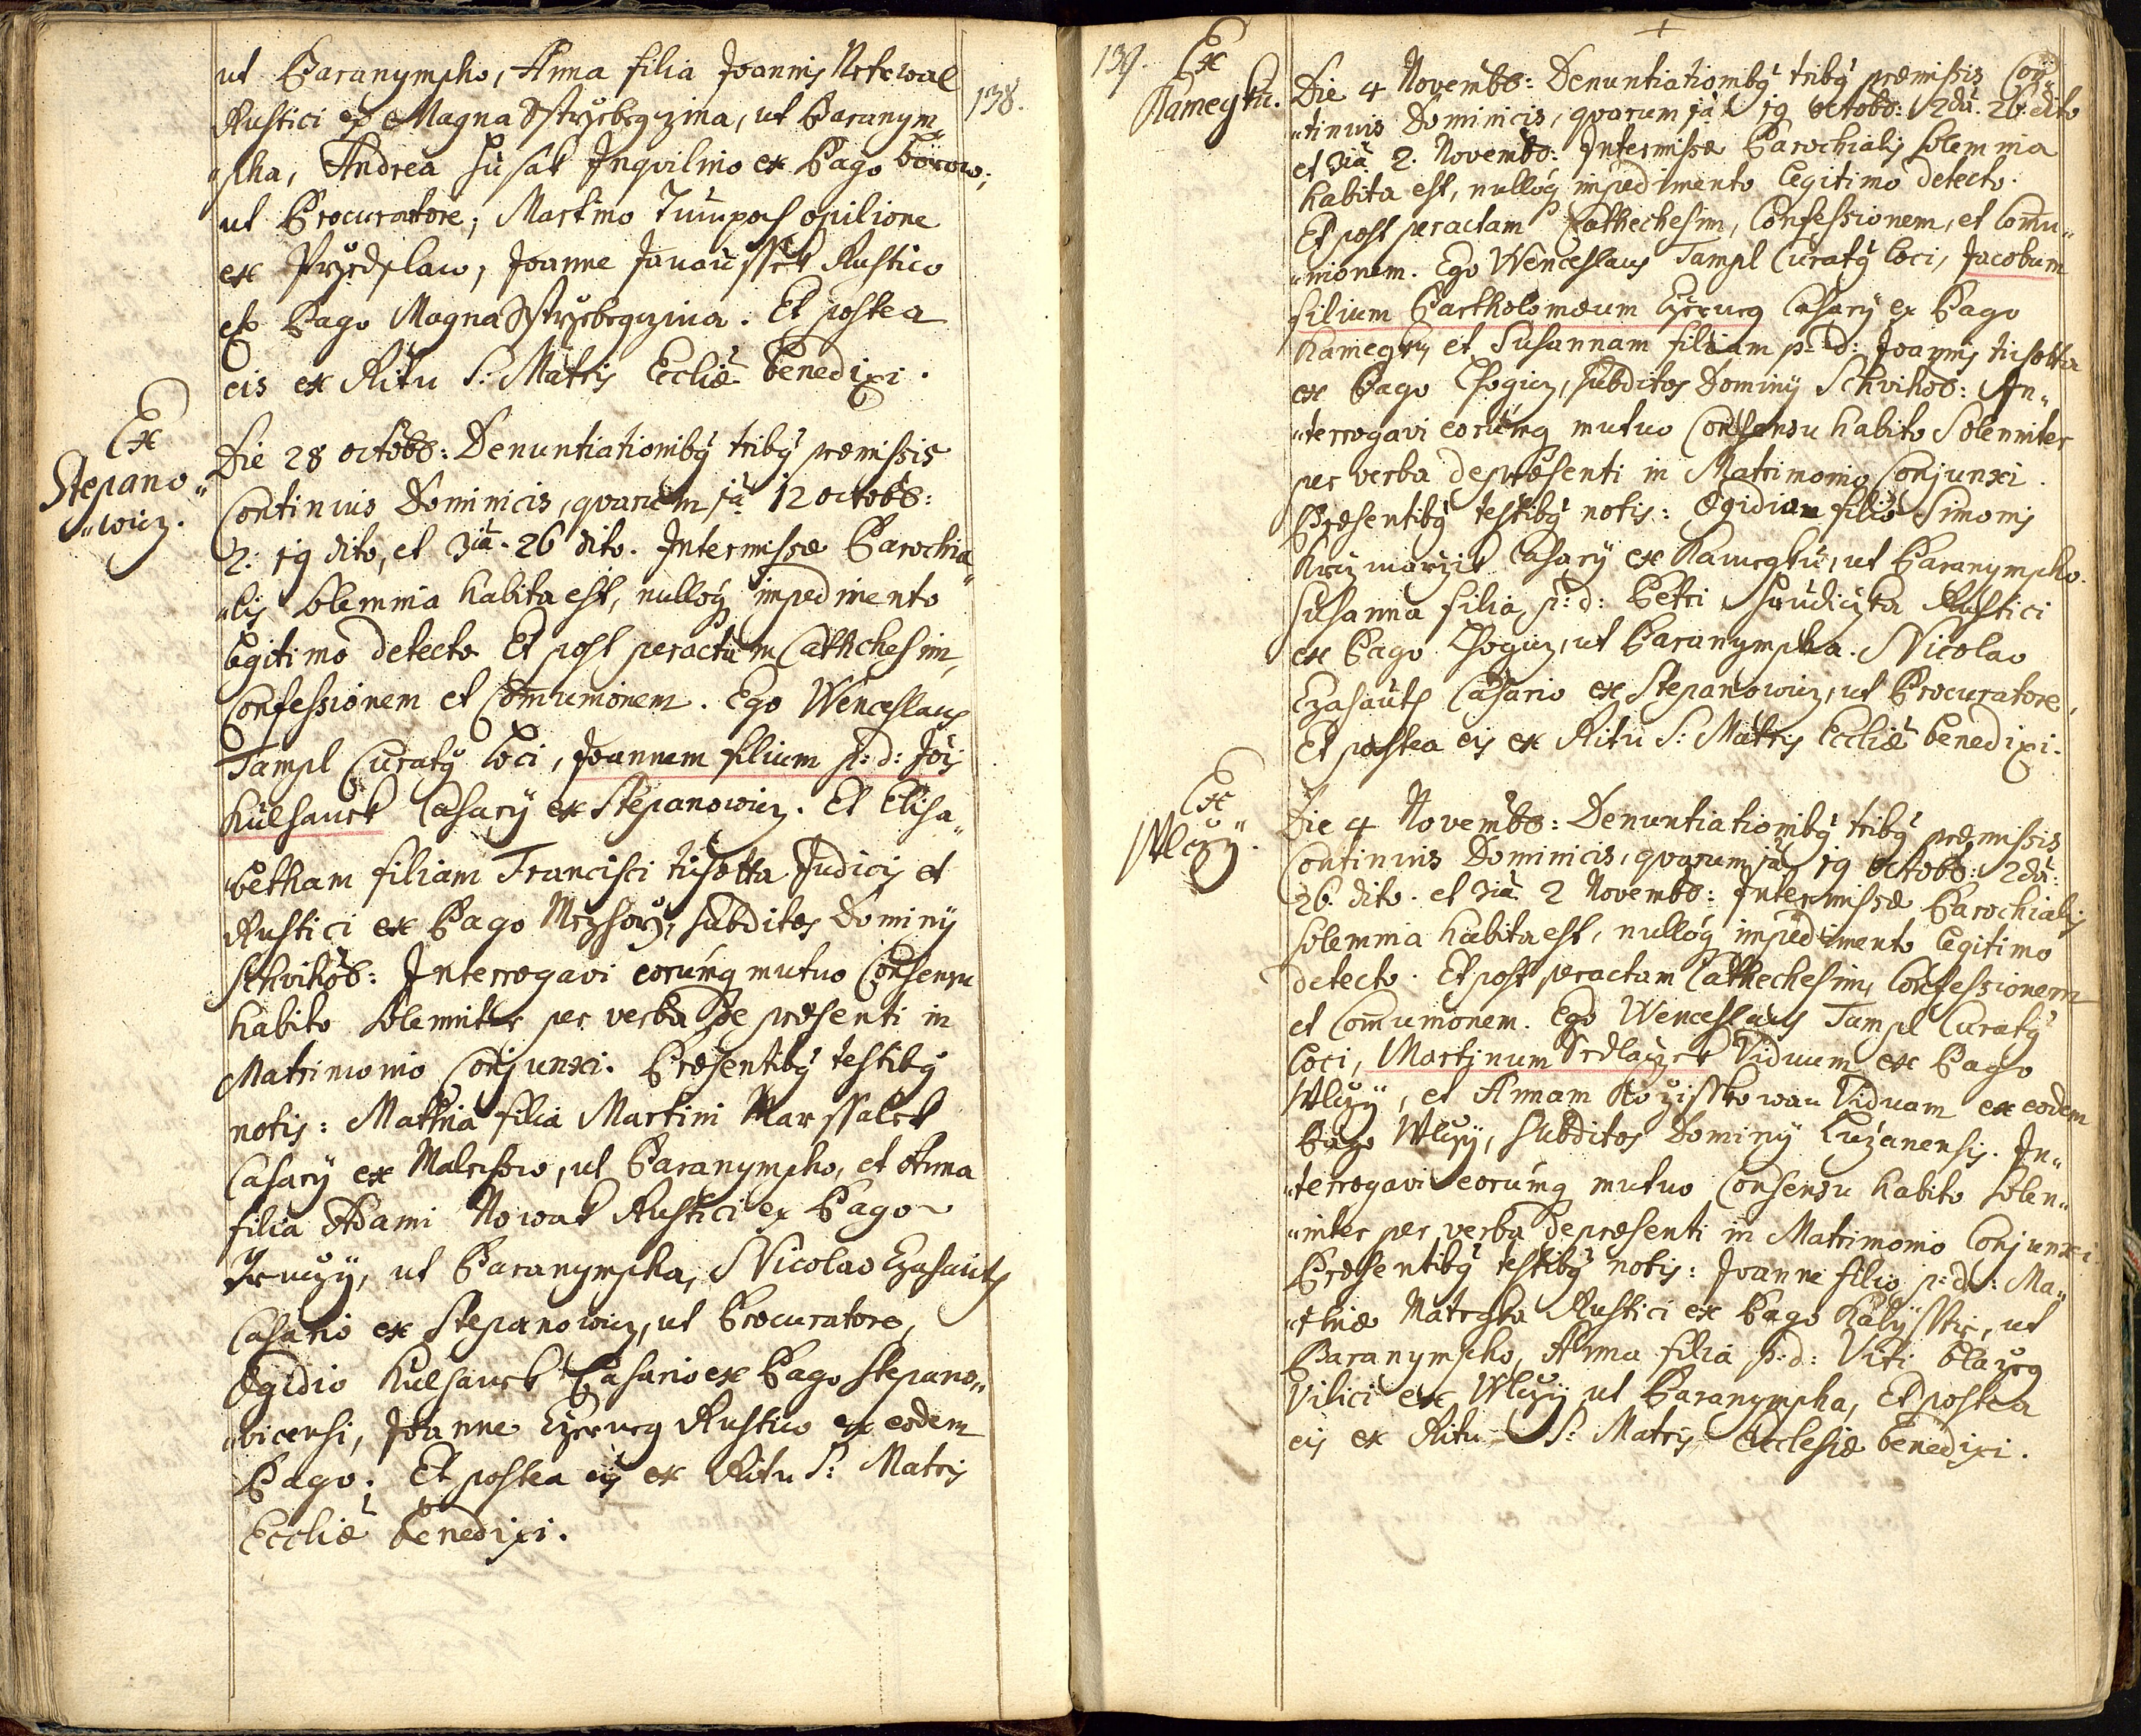 138.
ut Paranympho, Anna filia Joannis
Rustici ex Magna Sstrycbrgzina, ut Paranym„
„pha, Andrea Husak Inqvilino ex Pago borow,
ut Procuratore, Martino opilione
ex Przedslaw, Joanne Janaussek Rustico
ex Pago Magna Sstrycbrgzina. Et postea
eis ex Ritu S: Matris Eccliæ benedixi.
Ex
Stepano„
„wicz.
Die 28 octobr: Denuntiationibq tribq præmissis
Continuis Dominicis, qvarum 1a 12 octobr:
2. 19 dito, et 3ia. 26 dito. Intermissæ Parochia„
„lis Solemnia habita est, nulloq impedimento
legitimo detecto Et post peractam Cathchesim,
Confessionem et Comunionem. Ego Wenceslaus
Tampl Curatq loci, Joannem filium p: d: Jois
Kulhanek Casarij ex Stepanowicz. Et Elisa„
betham filiam Francisci tusatta Judicis et
Rustici ex Pago Mczhorz, subditos Dominij
Schvihob: Interrogavi eorumq mutuo Consensu
habito Solenniter per verba de præsenti in
Matrimonio Conjunxi. Præsentibq testibq
notis: Mathia filia Martini Marssalek
Casarij ex Malechow, ut Paranympho, et Anna
filia Adami Nowak Rustici ex Pago
ut Paranympha, Nicolao Czasauts
Casario ex Stepanowicz, ut Procuratore,
Egidio Kulhanek Casario ex Pago Stepano„
„vicensi, Joanne Czerveg Rustico ex eodem
Pago; Et postea eis ex Ritu S: Matris
Eccliæ benedixi.
139.
Ex
Kamegku.
Die 4 Novembr: Denuntiationibq tribq præmissis Con„
„tinuis Dominicis, qvarum 1a 19 octobr: 2da. 26 dito
et 3ia 2. Novembr: Intermissæ Parochialis solemnia
habita est, nulloq impedimento legitimo detecto.
Et post peractam Cathechesim, Confessionem, et Comu„
„nionem. Ego Wenceslaus Tampl Curatq loci, Jacobum
filium Bartholomæum Czerveg Casarij ex Pago
Kamegku et Susannam filiam p: d: Joannis tusatta
ex Pago Chogicz, subditos Dominij Schvihob: In„
„terrogavi eorumq mutuo Consensu habito Solenniter
per verba de præsenti in Matrimonio Conjunxi.
Præsentibq testibq notis: Egidium filio Simonis
Casarij ex Kamegku, ut Paranympho.
Susanna filia p: d: Petri Rustici
ex Pago Chogicz, ut Paranympha. Nicolao
Czasauts Casario ex Stepanowicz, ut Procuratore,
Et postea eis ex Ritu S: Matris Eccliæ benedixi.
Ex
Wlczij.
Die 4 Novembr: Denuntiationibq tribq præmissis
Continuis Dominicis, qvarum 1a 19 octobr: 2da:
26. dito. et 3ia 2 Novembr: Intermissæ Parochialis
solemnia habita est, nulloq impedimento legitimo
detecto. Et post peractam Cathechesim, Confessionem
et Comunionem. Ego Wenceslaus Tampl Curatq
loci, Martinum Sedlaczek Viduum ex Pago
Wlczij, et Annam Viduam ex eodem
Pago Wlczij, subditos Dominij Luzanensis. In„
„terrogavi eorumq mutuo Consensu habito Solen„
„niter per verba de præsenti in Matrimonio Conjunxi
Præsentibq testibq notis: Joanne filio p: d: Ma„
„thiæ Mategka Rustici ex Pago Kalisstie, ut
Paranympho, Anna filia p: d: Viti blazeg
Vilici ex Wlczij ut Paranympha, Et postea
eis ex Ritu S: Matris Ecclesiæ benedixi.